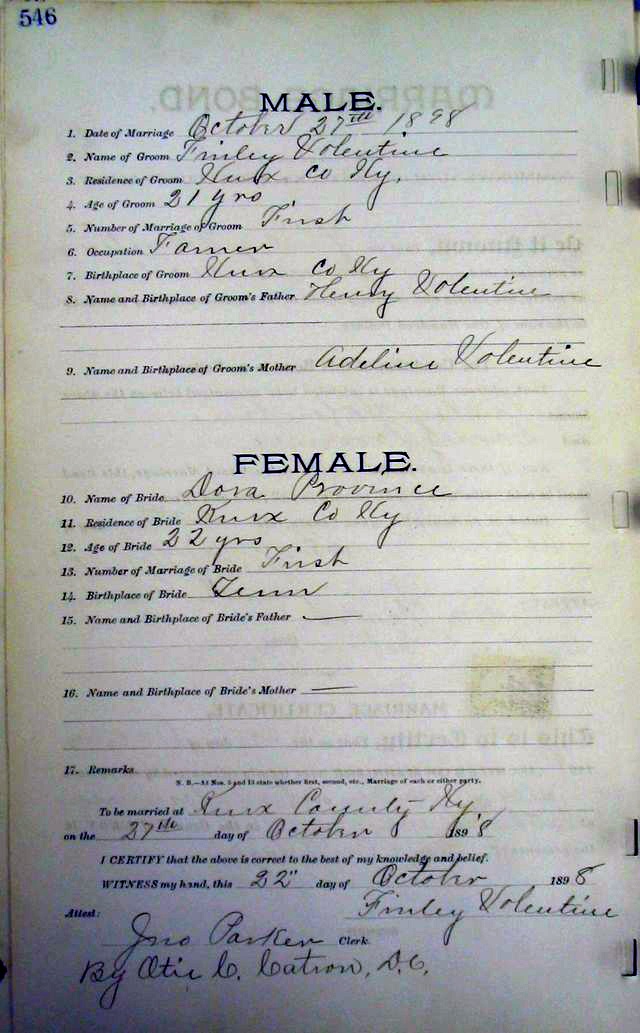 546
MALE.
1. Date of Marriage October 27th 1898
2. Name of Groom Finley Volentine
3. Residence of Groom Knox Co Ky.
4. Age of Groom 21 yrs
5. Number of Marriage of Groom First
6. Occupation Farmer
7. Birthplace of Groom Knox Co Ky
8. Name and Birthplace of Groom's Father Henry Volentine
9. Name and Birthplace of Groom's Mother Adeline Volentine
FEMALE.
10. Name of Bride Dora Province
11. Residence of Bride Knox Co Ky
12. Age of Bride 22 yrs
13. Number of Marriage of Bride First
14. Birthplace of Bride Tenn
15. Name and Birthplace of Bride's Father —
16. Name and Birthplace of Bride's Mother —
17. Remarks
N. B.—At Nos. 5 and 13 state whether first, second, etc., Marriage of each or either party.
To be married at Knox County Ky,
on the 27th day of October 1898
I CERTIFY that the above is correct to the best of my knowledge and belief.
WITNESS my hand, this 22" day of October 1898
Finley Volentine
Attest:
Jno Parker Clerk.
By Otis C. Catron, D.C.